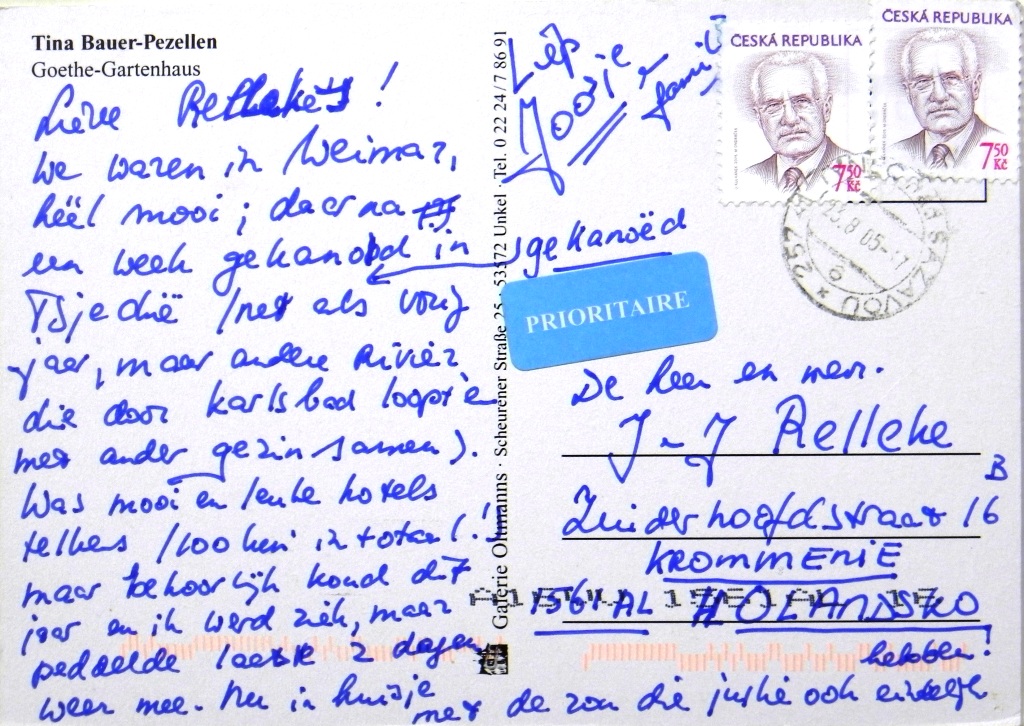 Tina Bauer-Pezellen
Goethe-Gartenhaus
Lieve Rellekes!
We waren in Weimar,
heël mooi; daarna
een week gekanod in
Tsjechië (net als vorig
jaar, maar andere rivier
die door Karlsbad loopt
met ander gezin samen).
Was mooi en leuke hotels
telkens (100 km in totaal!)
maar behoorlijk koud dit
jaar en ik werd ziek, maar
peddelde laatste 2 dagen
weer mee. Nu in huisje
met de zon die jullie ook eindelijk
hebben!
gekanoëd
Liefs
Joosje
familie
Galerie Oltmanns · Scheurener Straße 25 · 53572 Unkel · Tel. 0 22 24 / 7 86 91
ČESKÁ REPUBLIKA
7 50 Kč
ČESKÁ REPUBLIKA
7 50 Kč
SÁZAVOU
23.8.05-17
6
PRIORITAIRE
De heer en mevr.
J-J Relleke
Zuiderhoofdstraat 16
B
KROMMENIE
1561 AL HOLANDSKO